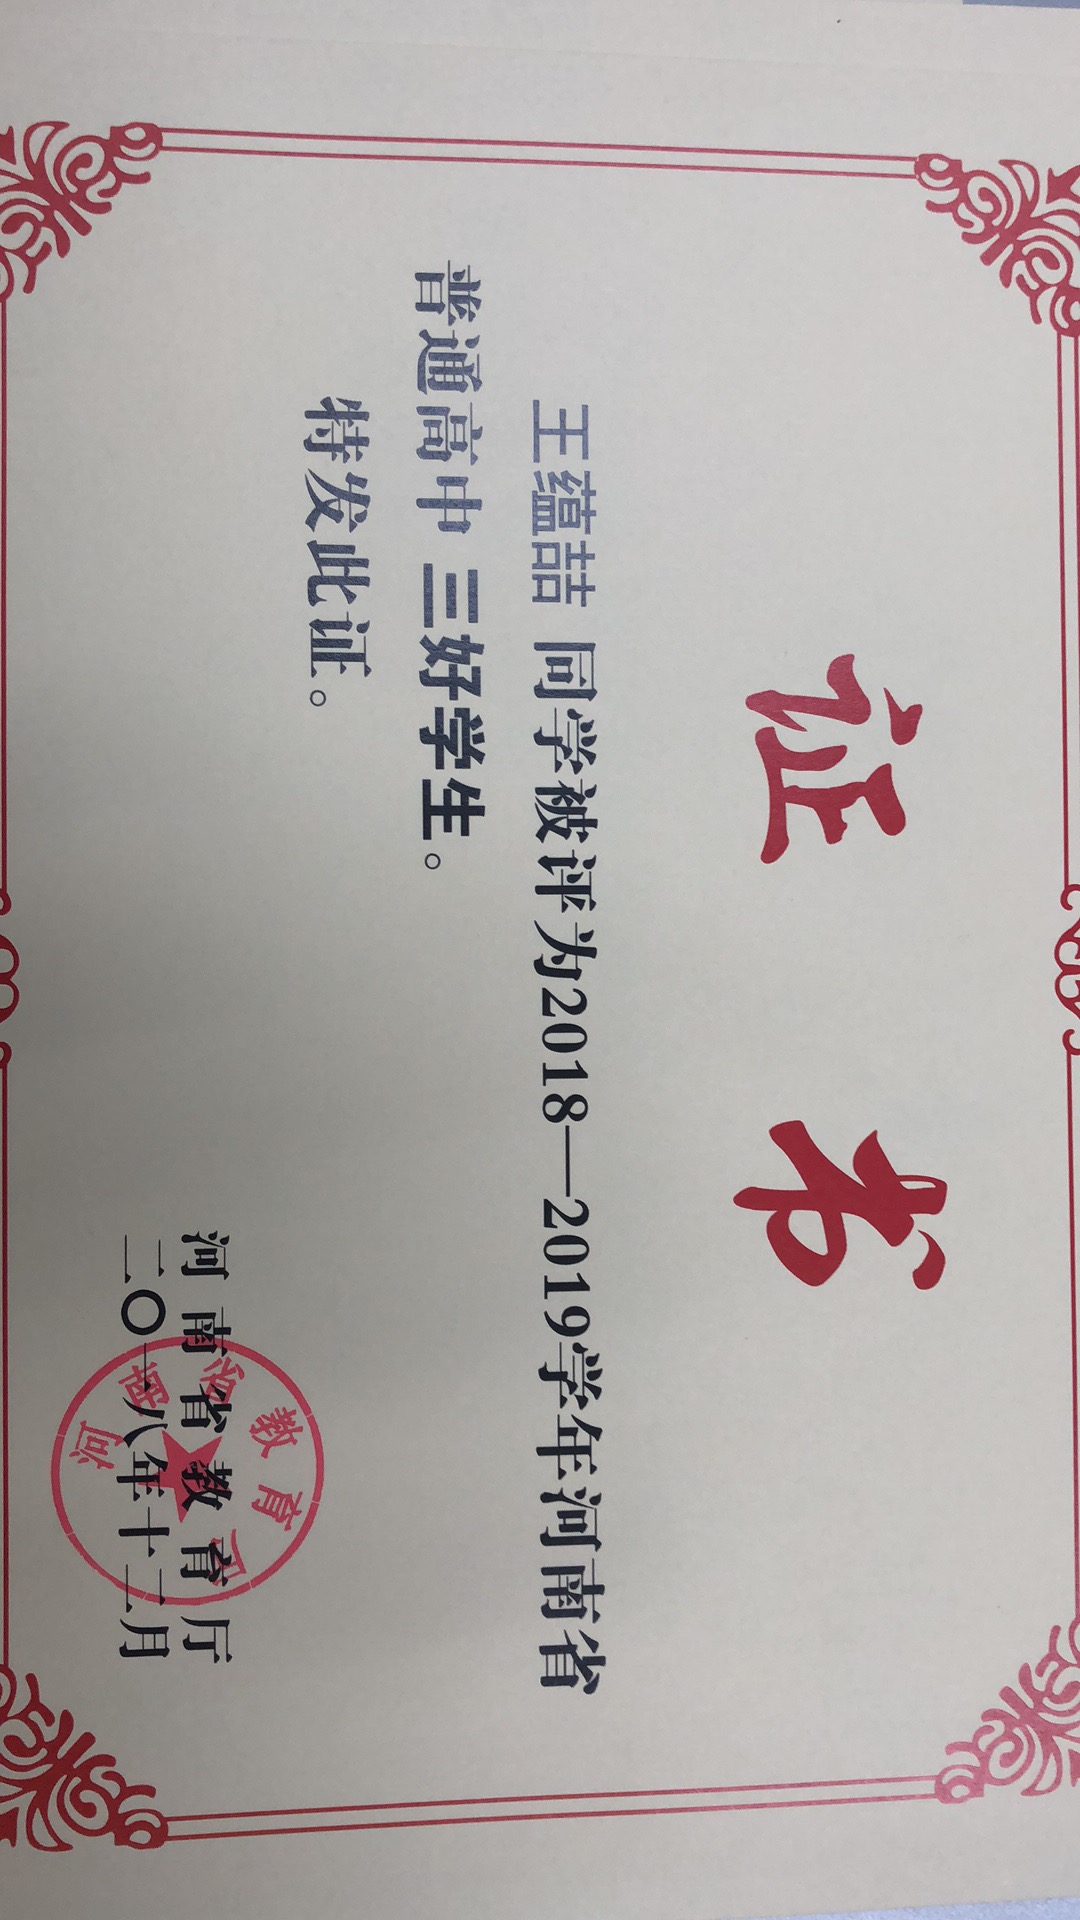 证书
王蕴喆 同学被评为2018—2019学年河南省
普通高中 三好学生。
特发此证。
河南省教育厅
二〇一八年十二月
河南省教育厅